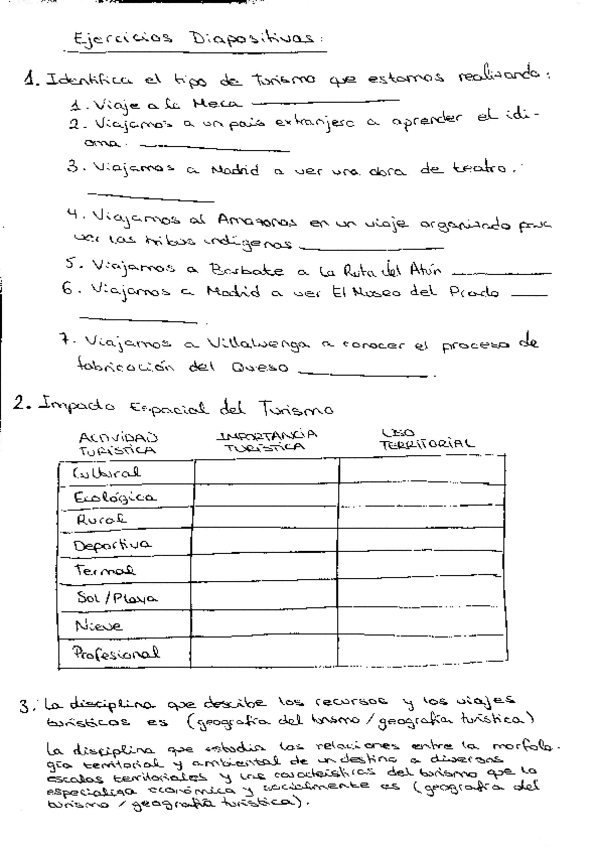 Ejercicios Diapositivas:
1. Identifica el tipo de Turismo que estamos realizando:
1. Viaje a la Meca
2. Viajamos a un país extranjero a aprender el idi-
oma.
3. Viajamos a Madrid a ver una obra de teatro.
4. Viajamos al Amazonas en un viaje organizado para
ver las tribus indígenas
5. Viajamos a Barbate a la Ruta del Atún
6. Viajamos a Madrid a ver El Museo del Prado
.
7. Viajamos a Villaluenga a conocer el proceso de
fabricación del Queso .
2. Impacto Espacial del Turismo
ACTIVIDAD TURÍSTICA IMPORTANCIA TURÍSTICA USO TERRITORIAL
Cultural
Ecológica
Rural
Deportiva
Termal
Sol / Playa
Nieve
Profesional
3. La disciplina que describe los recursos y los viajes
turísticos es (geografía del turismo / geografía turística)
La disciplina que estudia las relaciones entre la morfolo-
gía territorial y ambiental de un destino a diversas
escalas territoriales y las características del turismo que lo
especializa económica y socialmente es (geografía del
turismo / geografía turística).